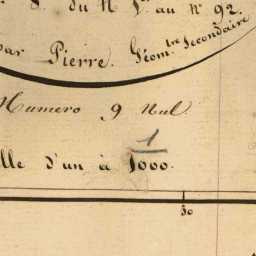 S. du N° 1er au N° 92.
par Pierre. Géomtre Secondaire
Numero 9 Nul
1
lle d'un à 1000.
50